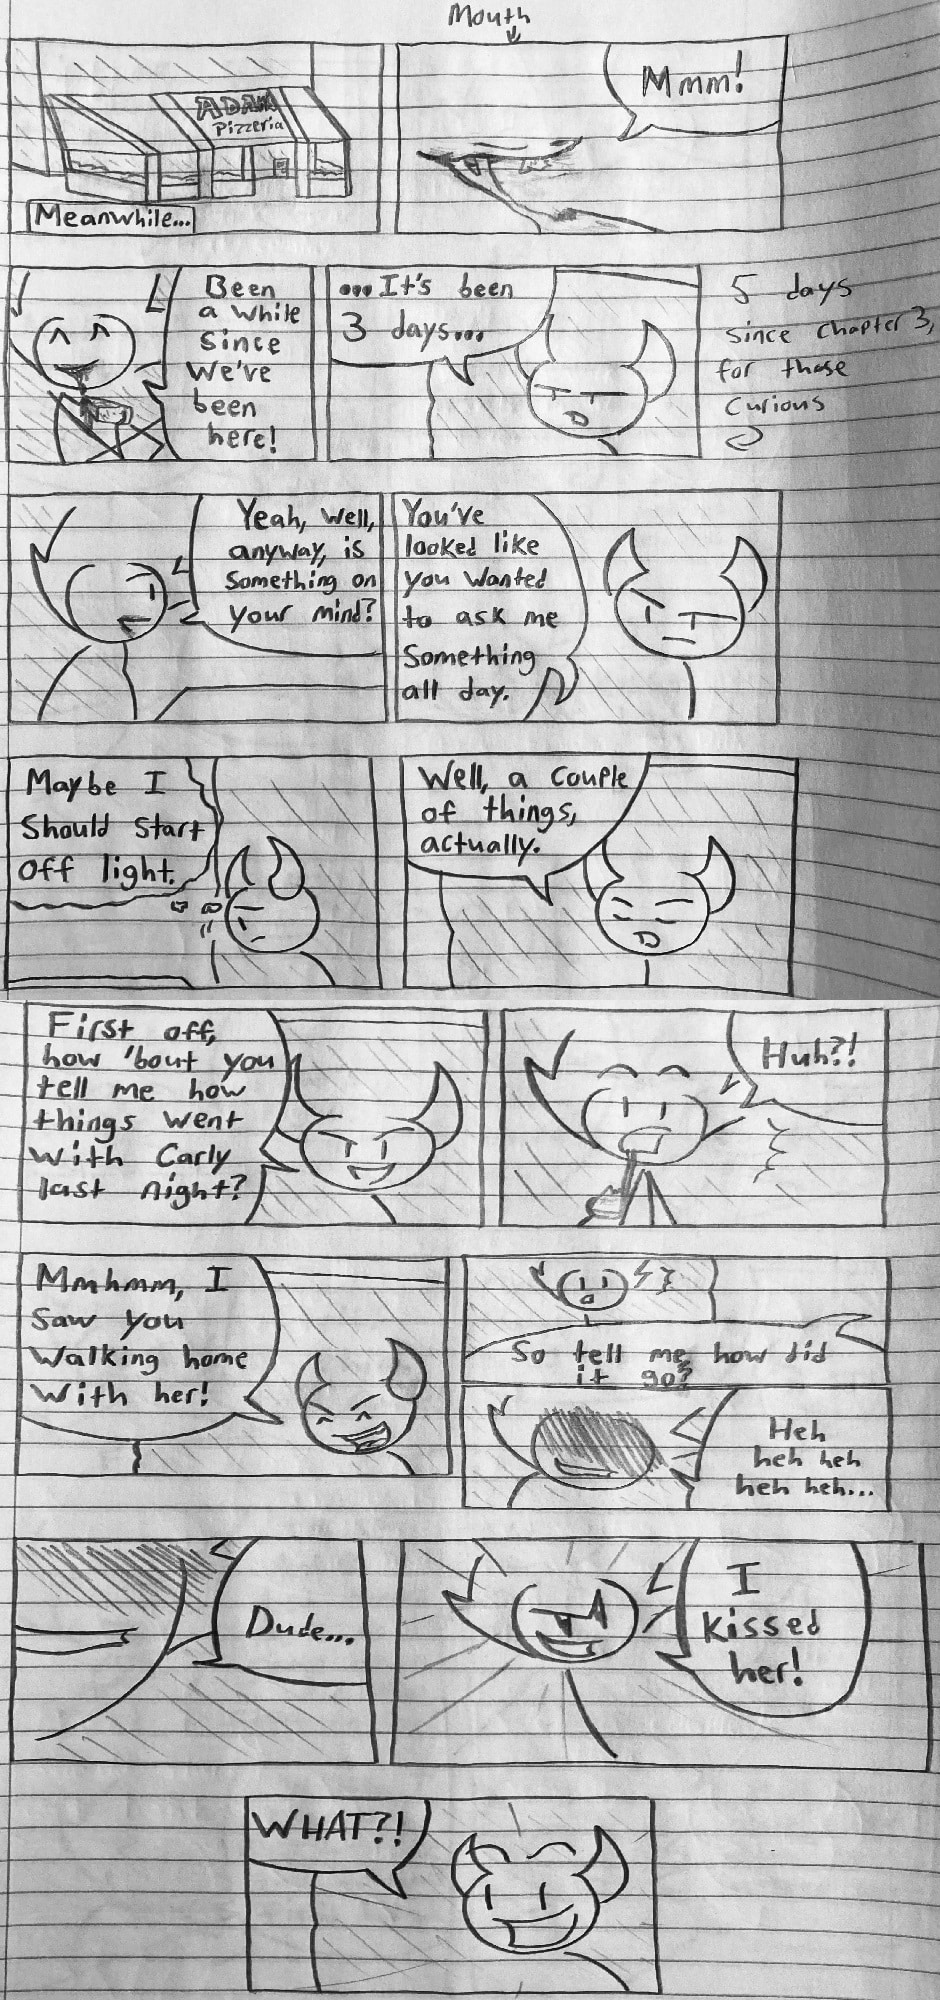 Mouth
ADAM
Pizzeria
Meanwhile...
Mmm!
Been
a while
since
we've
been
here!
...It's been
3 days...
5 days
since chapter 3,
for those
curious
Yeah, well,
anyway, is
something on
your mind?
You've
looked like
you wanted
to ask me
something
all day.
Maybe I
should start
off light.
Well, a couple
of things,
actually.
First off,
how 'bout you
tell me how
things went
with Carly
last night?
Huh?!
Mmhmm, I
saw you
walking home
with her!
So tell me, how did
it go?
Heh
heh heh
heh heh...
Dude...
I
kissed
her!
WHAT?!